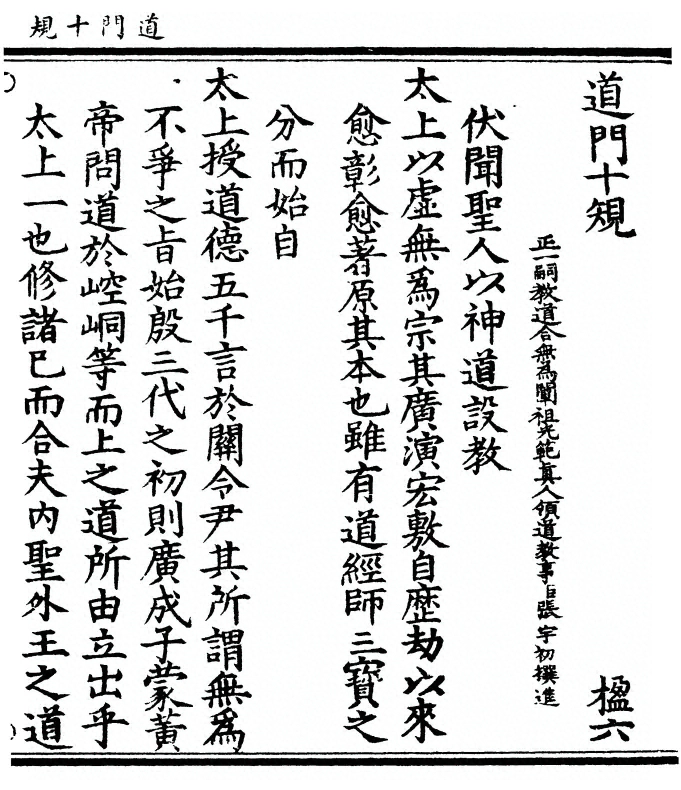 道門十規
道門十規 楹六
正一嗣教道合無為闡祖光範真人領道教事臣張宇初撰進
伏聞聖人以神道設教
太上以虛無為宗其廣演宏敷自歷劫以來
愈彰愈著原其本也雖有道經師三寶之
分而始自
太上授道德五千言於關令尹其所謂無為
不爭之旨始殷三代之初則廣成子蒙黃
帝問道於崆峒等而上之道所由立出乎
太上一也修諸巳而合夫內聖外王之道